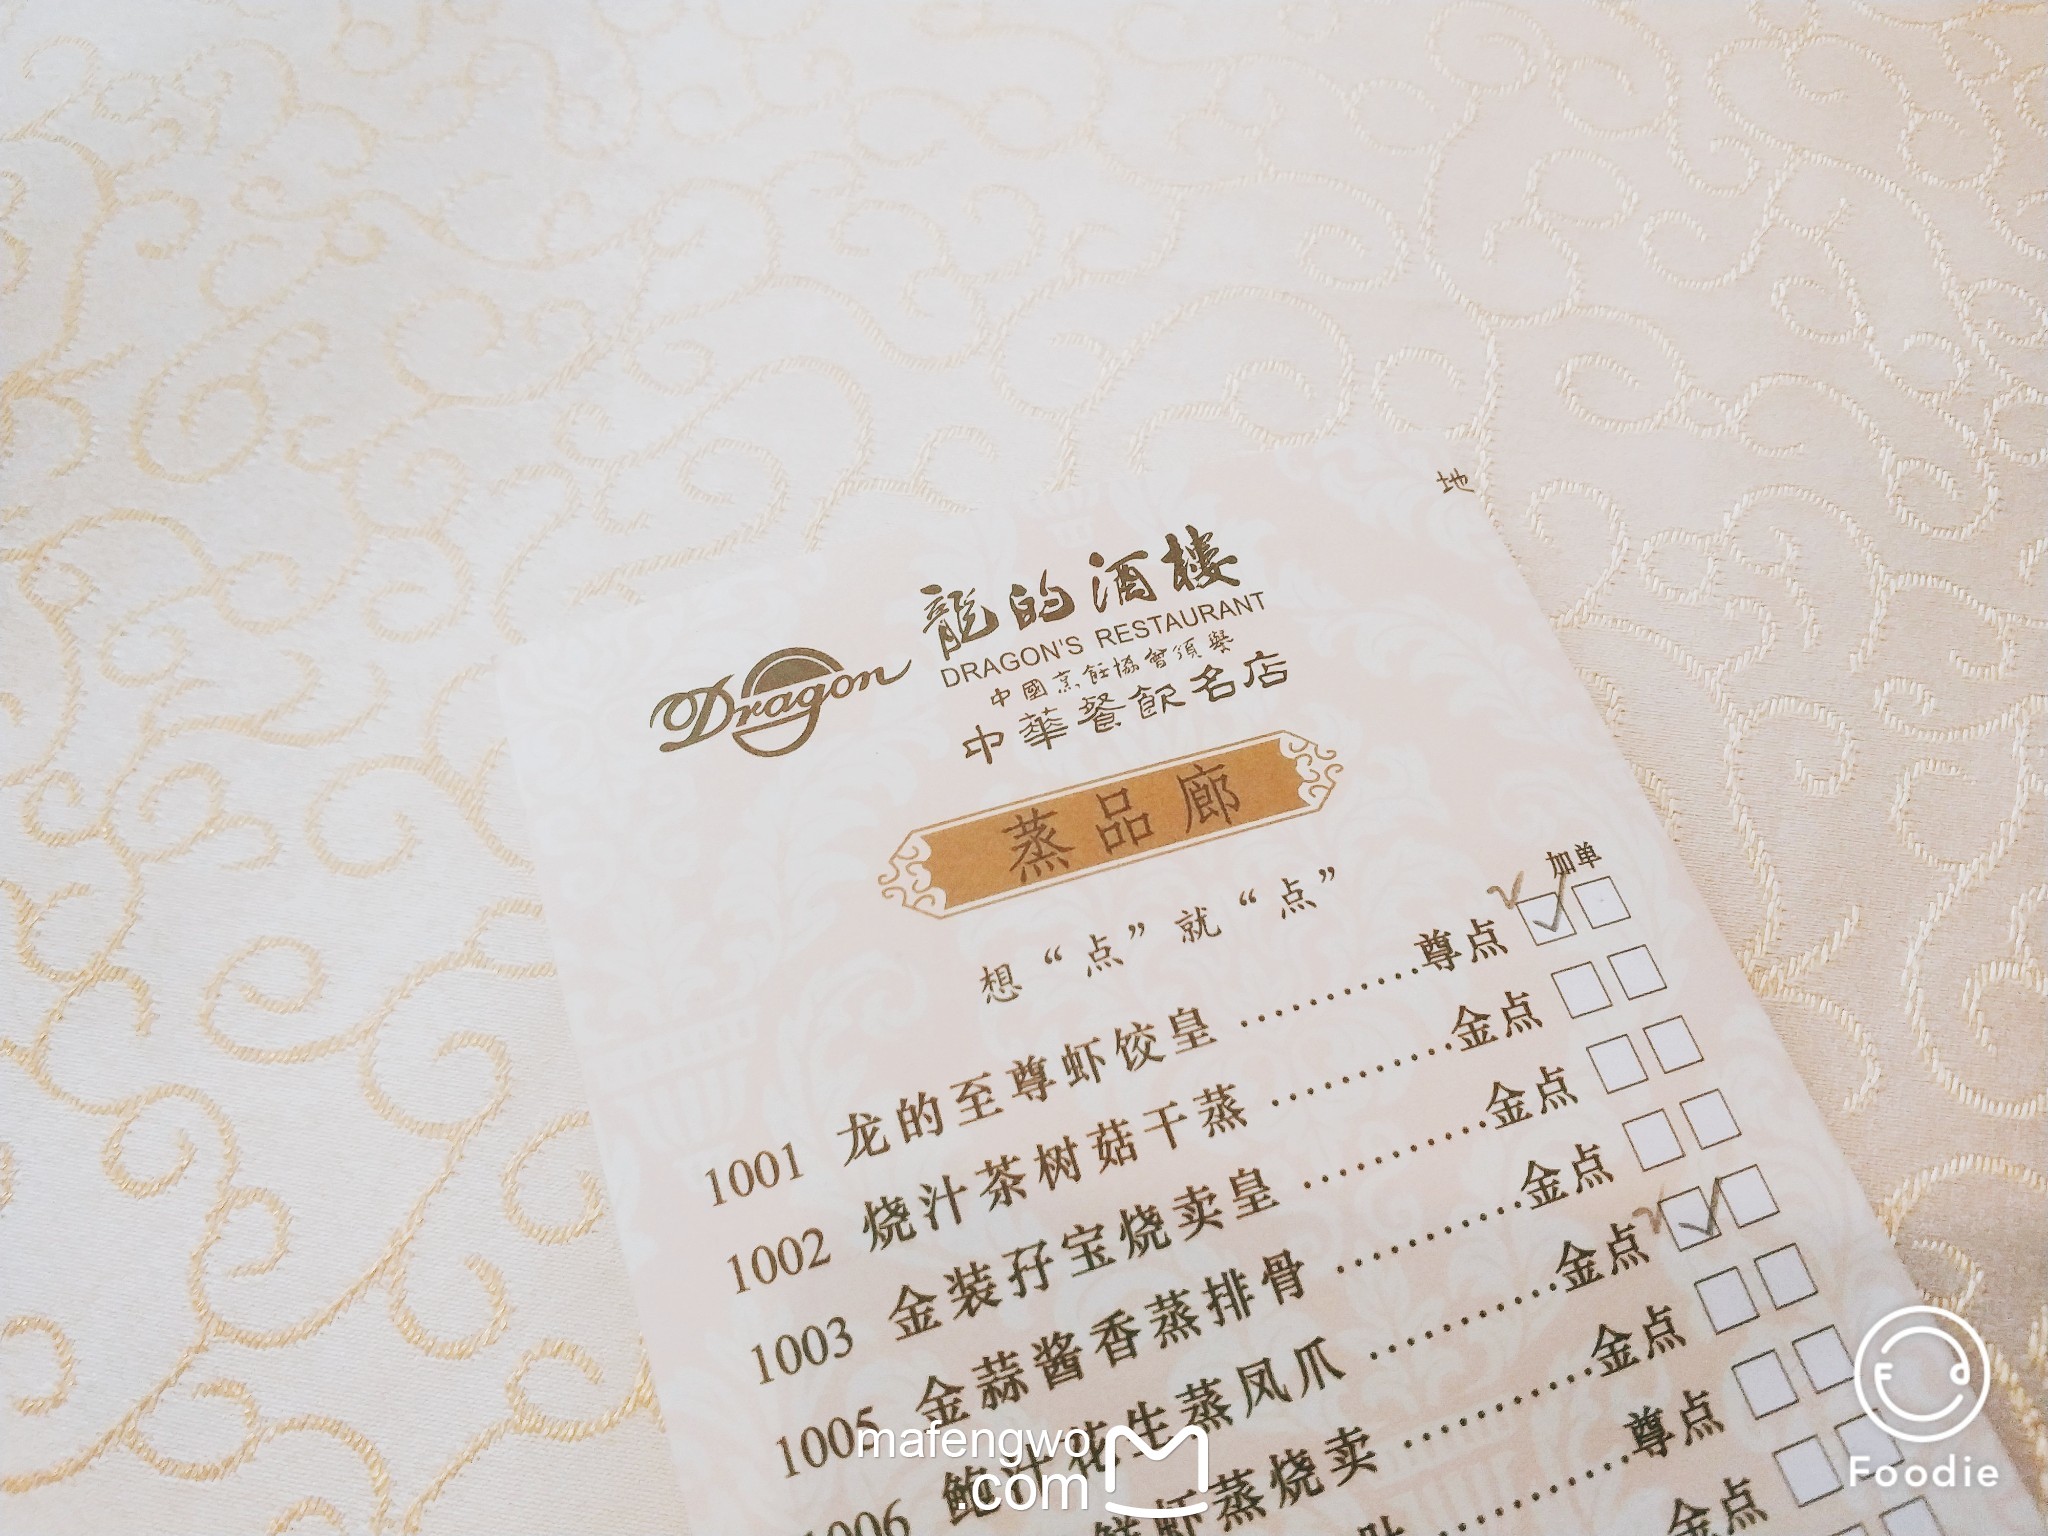 地
Dragon
龍的酒樓
DRAGON'S RESTAURANT
中國烹飪協會頒譽
中華餐飲名店
蒸品廊
想“点”就“点”
加单
1001 龙的至尊虾饺皇 ............尊点
1002 烧汁茶树菇干蒸 ............金点
1003 金装孖宝烧卖皇 ............金点
1005 金蒜酱香蒸排骨 ............金点
1006 鲍汁花生蒸凤爪 ............金点
鲜虾蒸烧卖 ............金点
尊点
金点
mafengwo
.com
Foodie